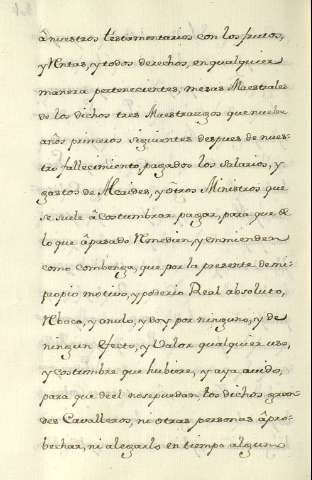 â nuestros testamentarios con los frutos,
y Rntas, y todos derechos, en qualquier
manera pertenecientes, mesas Maestrales
de los dichos tres Maestrazgos que nuebe
años primeros seguientes despues de nues-
tro fallecimiento, pagados los salarios, y
gastos de Alcides, y ôtros Ministros que
se suele â costumbrar pagar, para que de
lo que â pasado Rmedien, y enmienden
como combenga, que por la presente de mi
propio motivo, y poderio Real absoluto,
Rboco, y anulo, y doy por ninguno, y de
ningun efecto, y Valor qualquier uso,
y costumbre que hubiere, y aya auido,
para que de el no se puedan, los dichos gran-
des Cavalleros, ni otras personas âpro-
bechar, ni alegarlo en tiempo algun